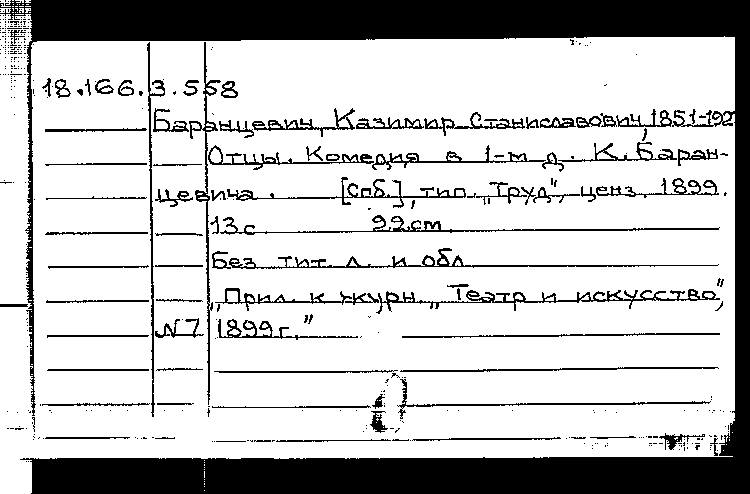 18.166.3.558
Баранцевич, Казимир Станиславович, 1851-192
Отцы. Комедия в 1-м д. К. Баран-
цевича. [Спб.], тип. „Труд", ценз. 1899.
13 с. 22 cm.
Без тит. л. и обл.
„Прил. к журн. „Театр и искусство",
N 7 1899 г."